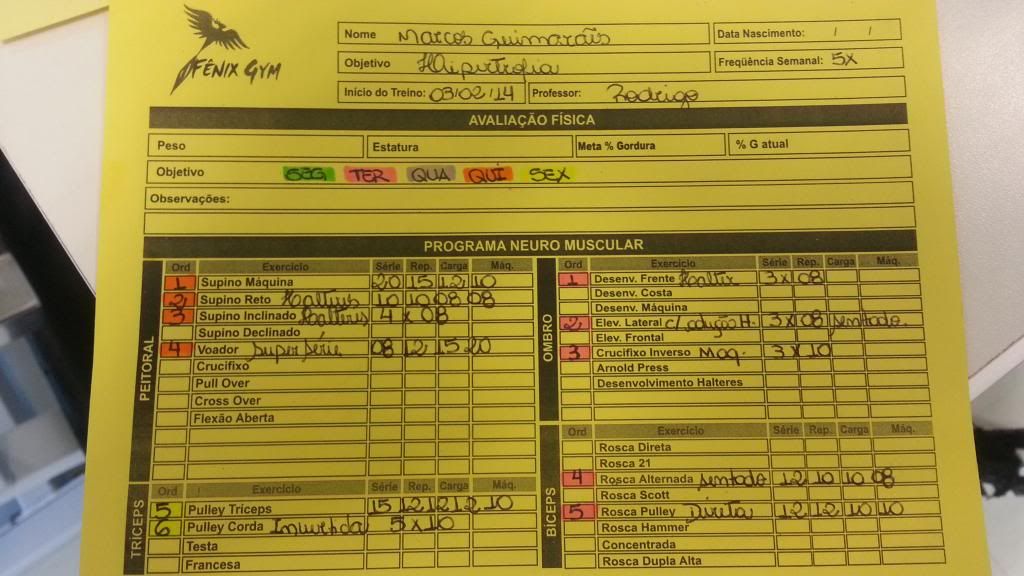 FÊNIX GYM
Nome Marcos Guimarães Data Nascimento: / /
Objetivo Hipertrofia Freqüência Semanal: 5X
Início do Treino: 03/02/14 Professor: Rodrigo
AVALIAÇÃO FÍSICA
Peso Estatura Meta % Gordura % G atual
Objetivo SEG TER QUA QUI SEX
Observações:
PROGRAMA NEURO MUSCULAR
PEITORAL
Ord Exercício Série Rep. Carga Máq.
1 Supino Máquina 20 15 12 10
2 Supino Reto Halteres 10 10 08 08
3 Supino Inclinado Halteres 4 x 08
Supino Declinado
4 Voador Super Série 08 12 15 20
Crucifixo
Pull Over
Cross Over
Flexão Aberta
TRÍCEPS
Ord Exercício Série Rep. Carga Máq.
5 Pulley Tríceps 15 12 12 12 10
6 Pulley Corda Invertida 5 x 10
Testa
Francesa
OMBRO
Ord Exercício Série Rep. Carga Máq.
1 Desenv. Frente Halter 3 x 08
Desenv. Costa
Desenv. Máquina
2 Elev. Lateral c/ adução H. 3 x 08 sentado.
Elev. Frontal
3 Crucifixo Inverso Maq. 3 x 10
Arnold Press
Desenvolvimento Halteres
BÍCEPS
Ord Exercício Série Rep. Carga Máq.
Rosca Direta
Rosca 21
4 Rosca Alternada sentado 12 10 10 08
Rosca Scott
5 Rosca Pulley Direta 12 12 10 10
Rosca Hammer
Concentrada
Rosca Dupla Alta